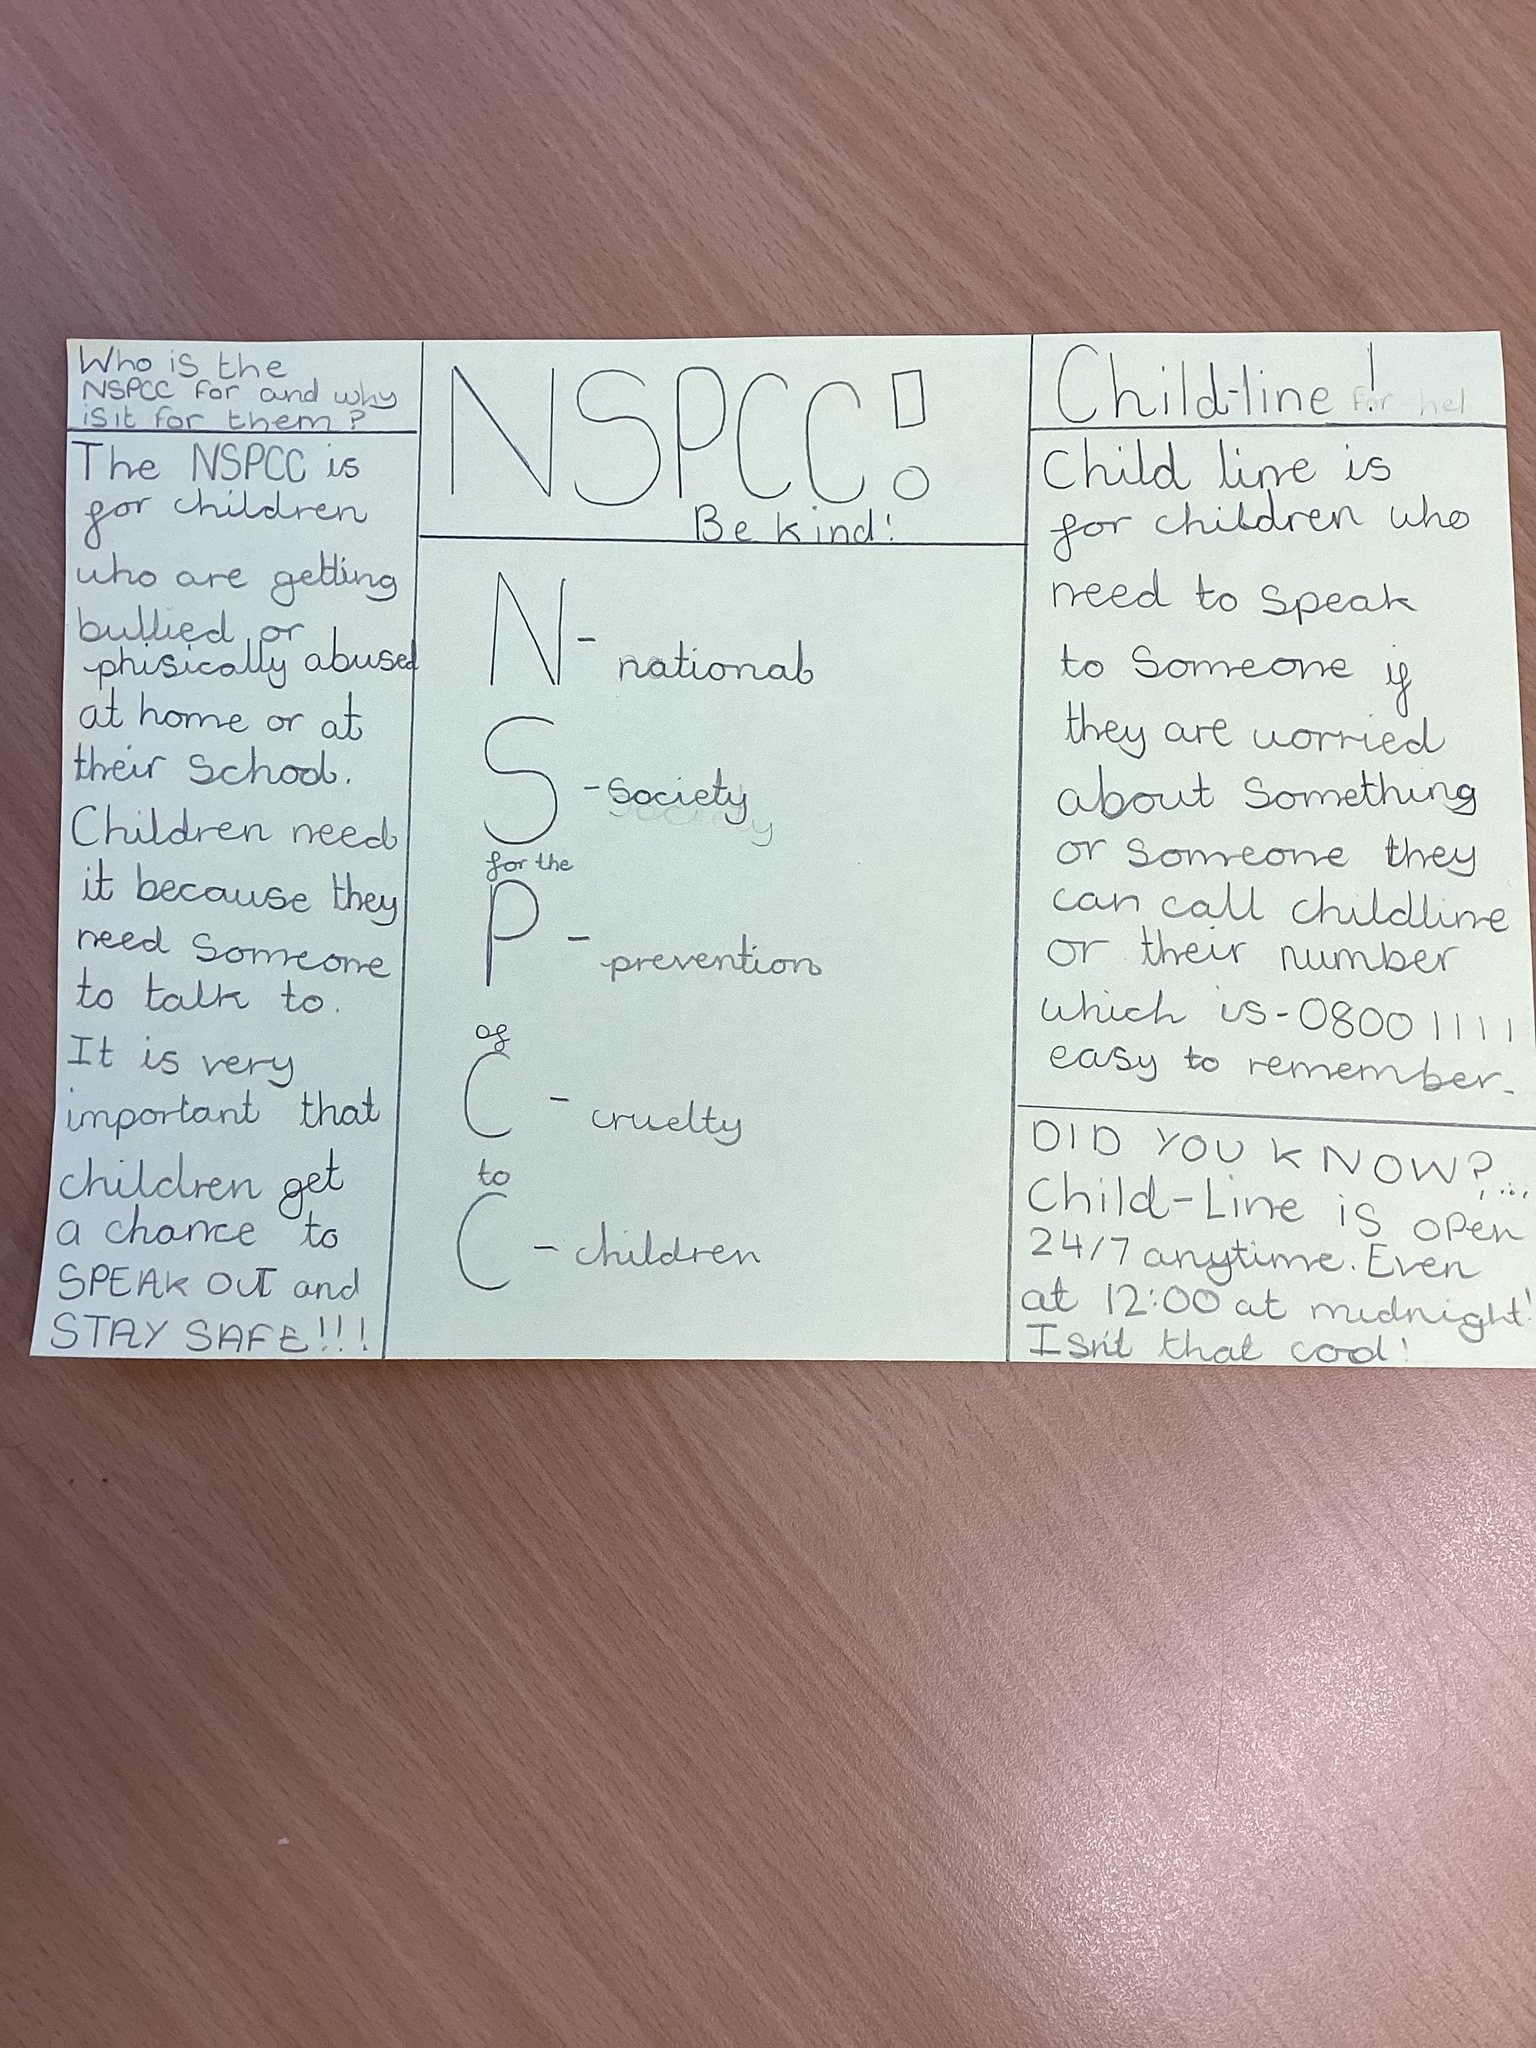 Who is the
NSPCC for and why
is it for them?
The NSPCC is
for children
who are getting
bullied or
phisically abused
at home or at
their school.
Children need
it because they
need someone
to talk to.
It is very
important that
children get
a chance to
SPEAK OUT and
STAY SAFE!!!
NSPCC!
Be kind!
N- national
S -society
for the
P - prevention
of
C - cruelty
to
C - children
Child-line!
for hel
Child line is
for children who
need to speak
to someone if
they are worried
about something
or someone they
can call childline
or their number
which is-0800 1111
easy to remember.
DID YOU KNOW?...
Child-Line is open
24/7 anytime. Even
at 12:00 at midnight!
Isn't that cool!